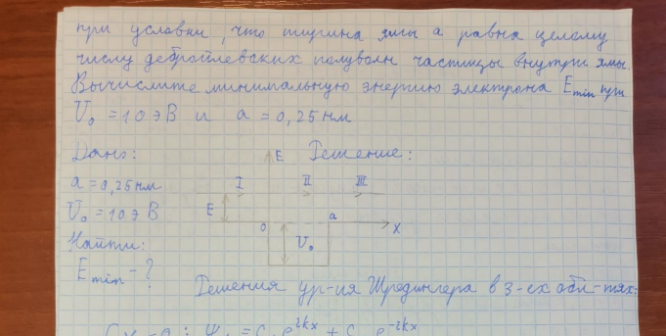 при условии, что ширина ямы a равна целому
числу дебройлевских полуволн частицы внутри ямы.
Вычислите минимальную энергию электрона E min при
U₀ = 10 эВ и a = 0,25 нм
Дано: E Решение:
a = 0,25 нм I II III
U₀ = 10 эВ E
0 a x
Найти: U₀
E min - ?
Решения ур-ия Шредингера в 3-ех обл-тях: